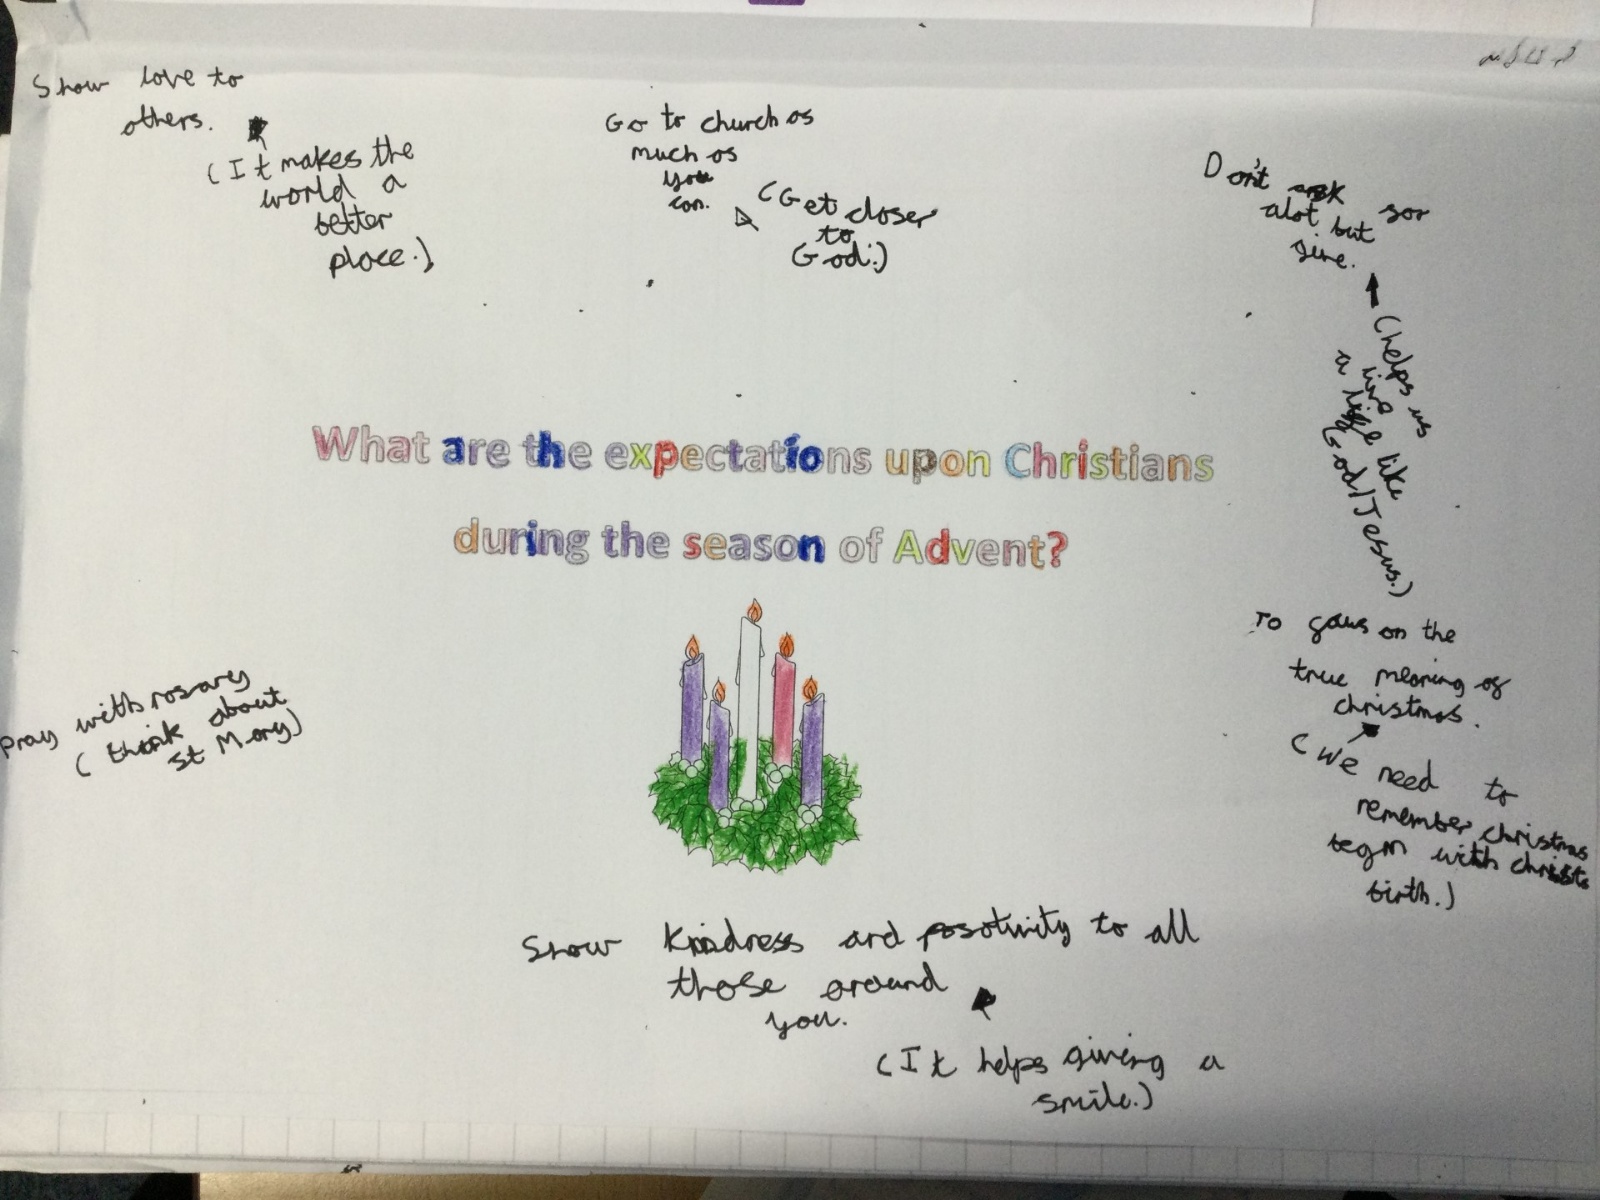 Show love to
others.
(It makes the
world a
better
place.)
Go to church as
much as
you
can.
(Get closer
to
God.)
Don't ask for
alot but
give.
(helps us
live
a life like
God/Jesus.)
What are the expectations upon Christians
during the season of Advent?
To focus on the
true meaning of
christmas.
(We need to
remember christmas
began with christs
birth.)
Pray with rosary
(think about
st Mary)
Show kindness and posotivity to all
those around
you.
(It helps giving a
smile.)